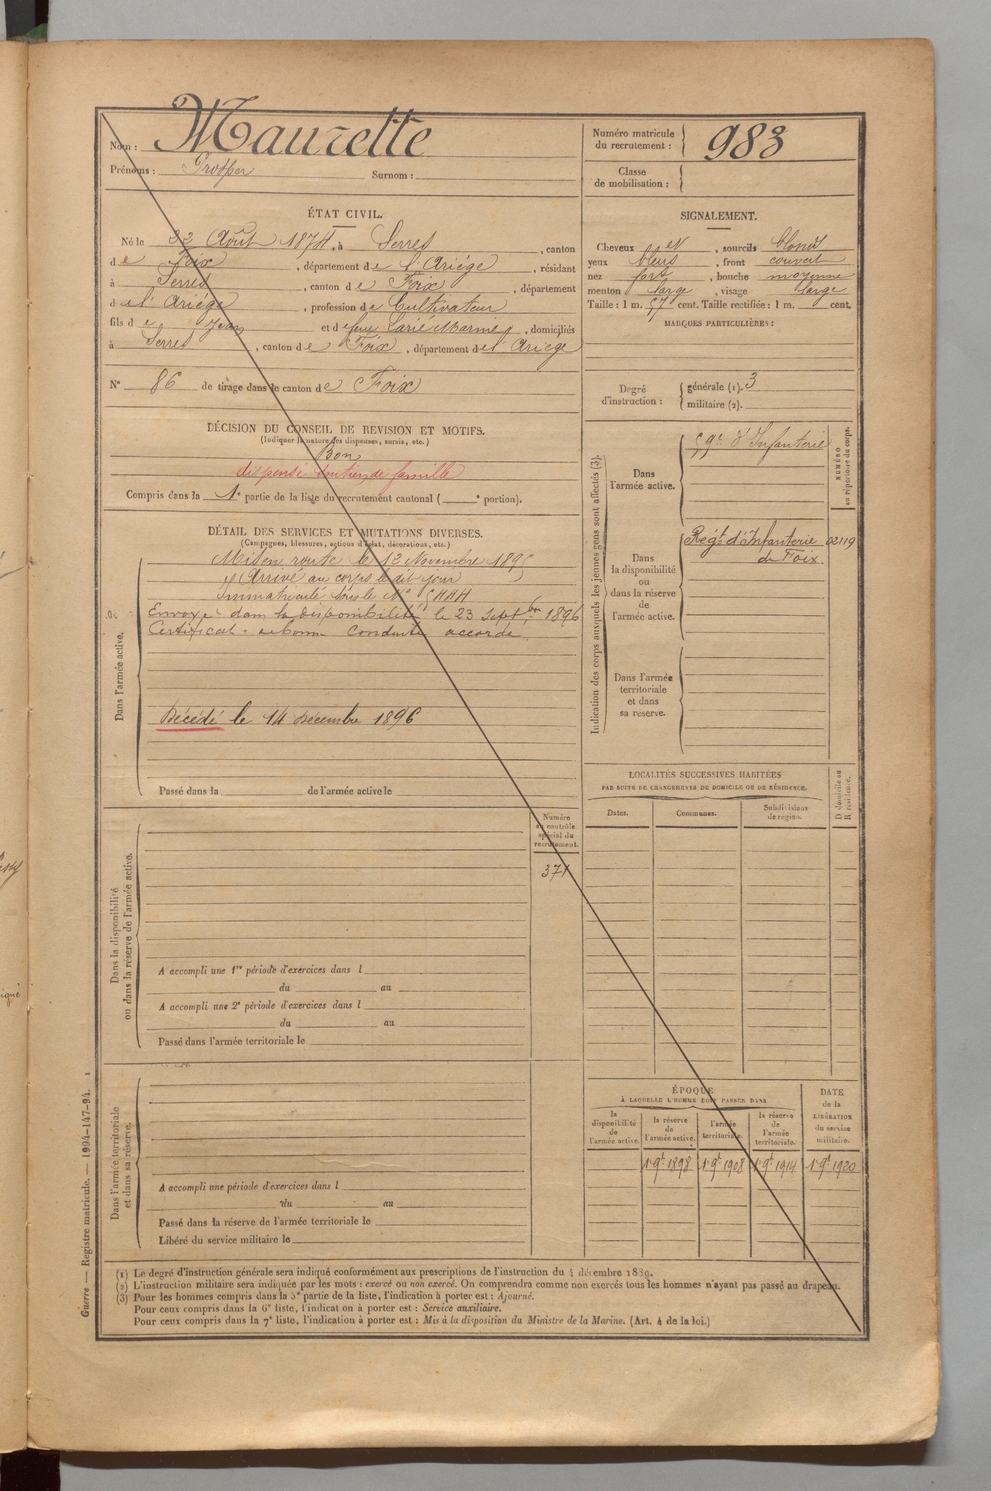 Nom : Maurette
Prénoms : Prosper Surnom :
Numéro matricule du recrutement : 983
Classe de mobilisation :
ÉTAT CIVIL.
Né le 22 Août 1874, à Serres, canton
de Foix, département de l'Ariège, résidant
à Serres, canton de Foix, département
de l'Ariège, profession de Cultivateur
fils de Jean et de feue, domiciliés
à Serres, canton de Foix, département de l'Ariège
N° 86 de tirage dans le canton de Foix
SIGNALEMENT.
Cheveux et, sourcils blonds
yeux bleus, front couvert
nez fort, bouche moyenne
menton large, visage large
Taille : 1 m. 57 cent. Taille rectifiée : 1 m. cent.
MARQUES PARTICULIÈRES :
Degré d'instruction : générale (1). 3
militaire (2).
DÉCISION DU CONSEIL DE REVISION ET MOTIFS.
(Indiquer la nature des dispenses, sursis, etc.)
Bon
dispensé soutien de famille
Compris dans la 1e partie de la liste du recrutement cantonal ( e portion).
DÉTAIL DES SERVICES ET MUTATIONS DIVERSES.
(Campagnes, blessures, actions d'éclat, décorations, etc.)
Dans l'armée active.
Mis en route le 12 Novembre 1895
Arrivé au corps le dit jour
Immatriculé sous le N°
Envoyé dans la disponibilité le 23 Septbre 1896
Certificat de bonne conduite accordé.
Décédé le 14 Décembre 1896
Passé dans la de l'armée active le
Indication des corps auxquels les jeunes gens sont affectés (3).
NUMÉRO au répertoire du corps.
Dans l'armée active.
59e d'Infanterie
Dans la disponibilité ou dans la réserve de l'armée active.
Regt d'Infanterie de Foix. 02119
Dans l'armée territoriale et dans sa réserve.
LOCALITÉS SUCCESSIVES HABITÉES
PAR SUITE DE CHANGEMENTS DE DOMICILE OU DE RÉSIDENCE.
Dates. Communes. Subdivisions de région. D domicile ou R résidence.
Numéro au contrôle spécial du recrutement.
371
Dans la disponibilité ou dans la réserve de l'armée active.
A accompli une 1re période d'exercices dans l
du au
A accompli une 2e période d'exercices dans l
du au
Passé dans l'armée territoriale le
Dans l'armée territoriale et dans sa réserve.
A accompli une période d'exercices dans l
du au
Passé dans la réserve de l'armée territoriale le
Libéré du service militaire le
ÉPOQUE
À LAQUELLE L'HOMME DOIT PASSER DANS
la disponibilité de l'armée active.
la réserve de l'armée active.
l'armée territoriale.
la réserve de l'armée territoriale.
DATE de la LIBÉRATION du service militaire.
1 9bre 1898 1 9bre 1908 1 9bre 1914 1 9bre 1920
(1) Le degré d'instruction générale sera indiqué conformément aux prescriptions de l'instruction du 4 décembre 1889.
(2) L'instruction militaire sera indiquée par les mots : exercé ou non exercé. On comprendra comme non exercés tous les hommes n'ayant pas passé au drapeau.
(3) Pour les hommes compris dans la 5e partie de la liste, l'indication à porter est : Ajourné.
Pour ceux compris dans la 6e liste, l'indication à porter est : Service auxiliaire.
Pour ceux compris dans la 7e liste, l'indication à porter est : Mis à la disposition du Ministre de la Marine. (Art. 4 de la loi.)
Guerre — Registre matricule. — 1994-147-94.